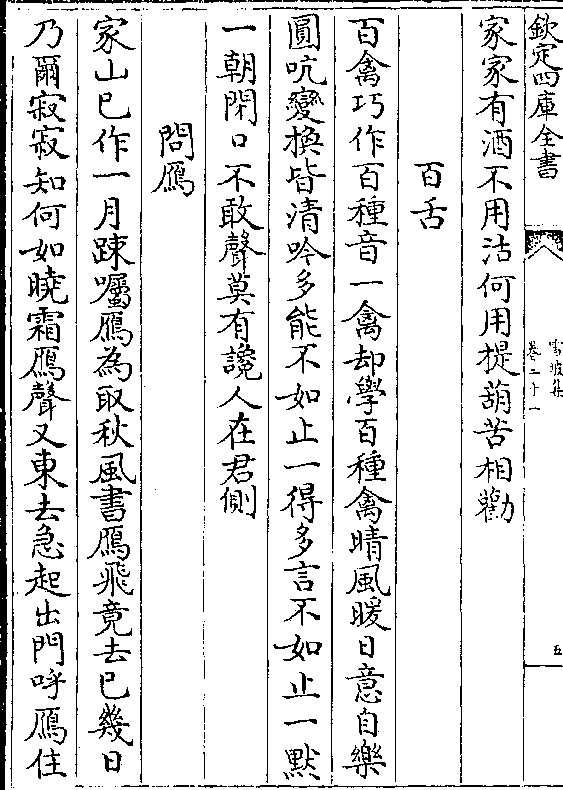 欽定四庫全書
雪坡集
卷二十一
五
家家有酒不用沽何用提葫苦相勸
百舌
百禽巧作百種音一禽却學百種禽晴風暖日意自樂
圓吭變換皆清吟多能不如止一得多言不如止一黙
一朝閉口不敢聲莫有讒人在君側
問鴈
家山已作一月踈囑鴈為取秋風書鴈飛竟去已幾日
乃爾寂寂知何如曉霜鴈聲又東去急起出門呼鴈住